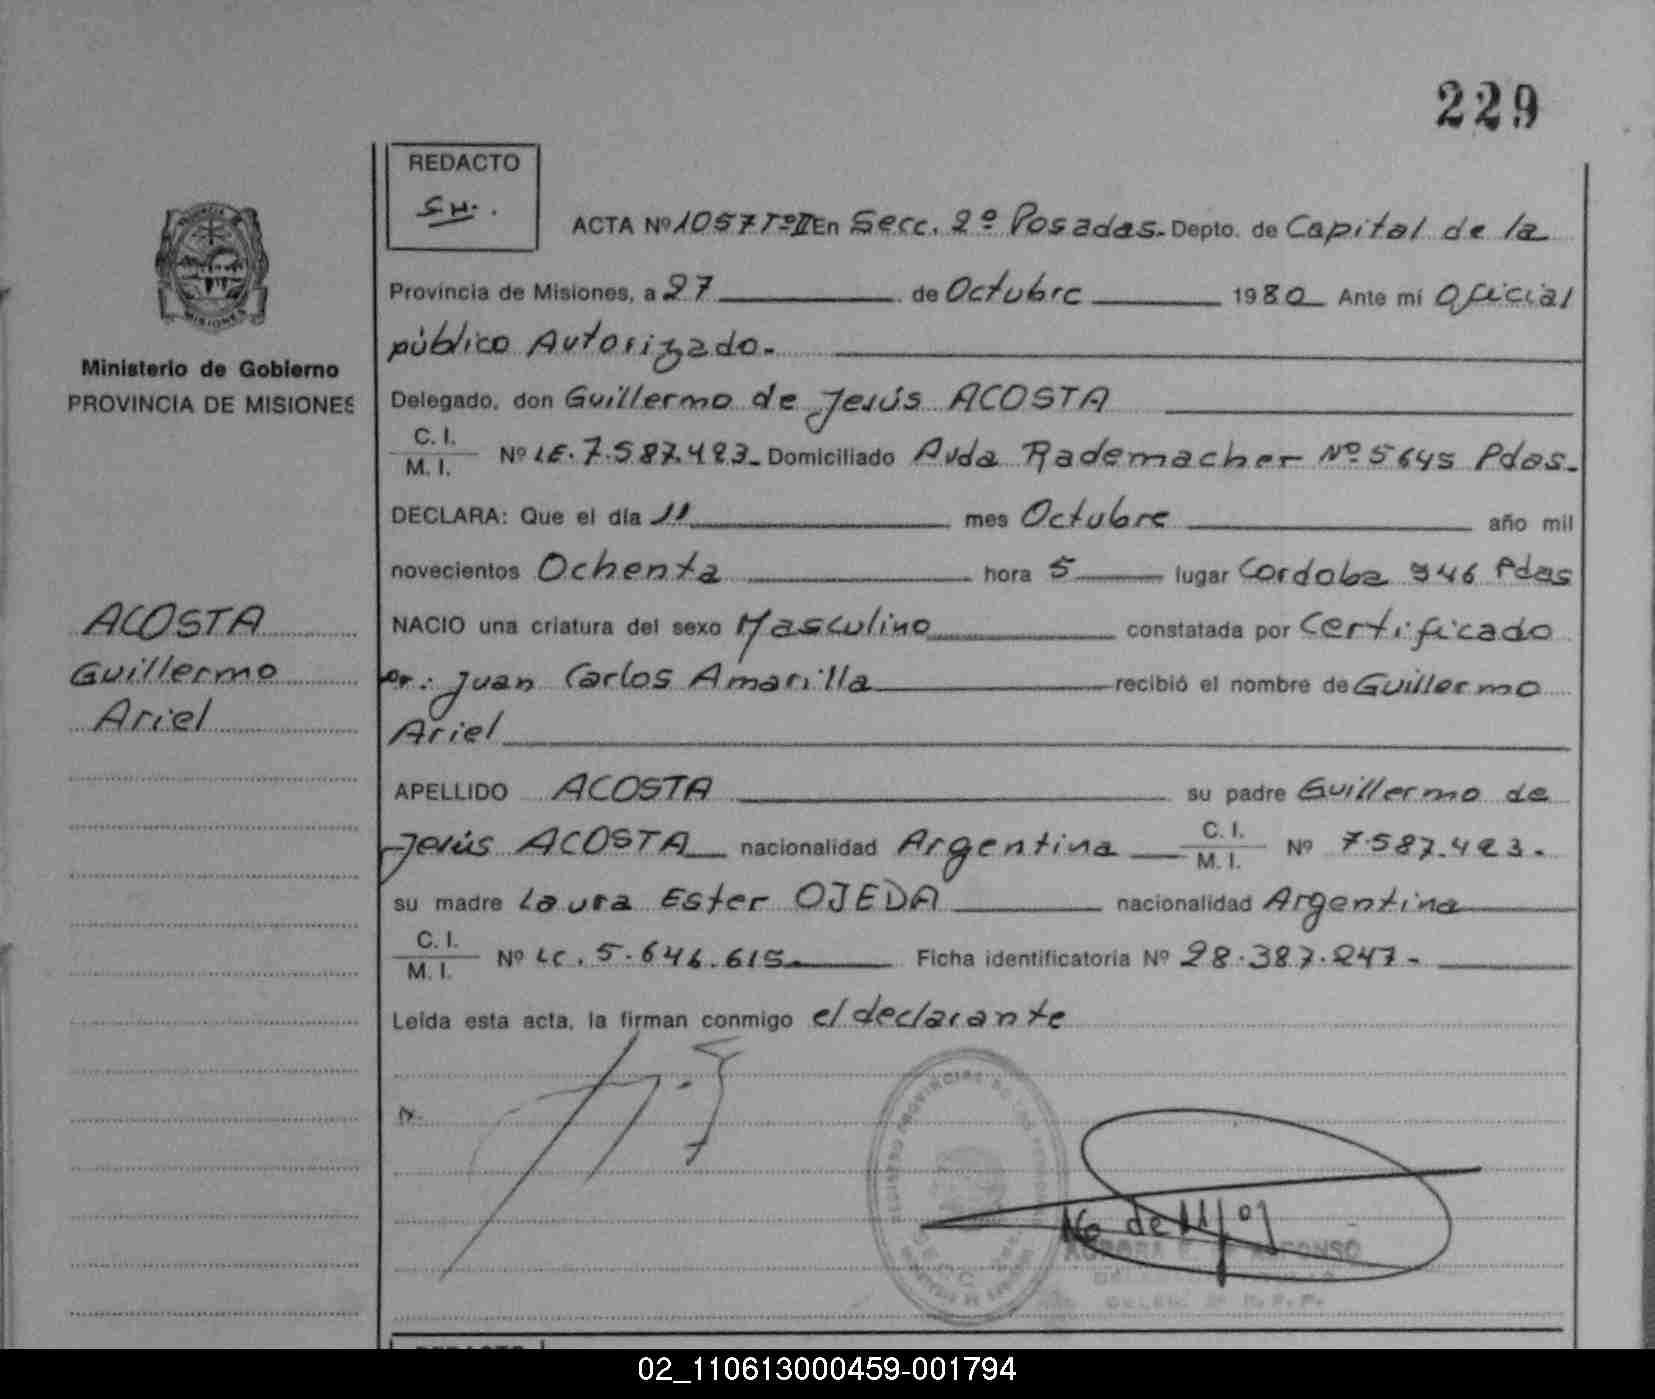 229
REDACTO
ACTA Nº 1057 Tº II En Secc. 2º Posadas. Depto. de Capital de la
Provincia de Misiones, a 27 de Octubre 1980 Ante mi Oficial
público Autorizado.
Ministerio de Gobierno
PROVINCIA DE MISIONES
Delegado, don Guillermo de Jesús ACOSTA
C. I.
M. I. Nº LE. 7.587.423. Domiciliado Avda Rademacher Nº 5645 Pdas.
DECLARA: Que el día 11 mes Octubre año mil
novecientos Ochenta hora 5 lugar Cordoba 946 Pdas
ACOSTA
Guillermo
Ariel
NACIO una criatura del sexo Masculino constatada por Certificado
Dr. Juan Carlos Amarilla recibió el nombre de Guillermo
Ariel
APELLIDO ACOSTA su padre Guillermo de
Jesús ACOSTA nacionalidad Argentina C. I. M. I. Nº 7.587.423.
su madre Laura Ester OJEDA nacionalidad Argentina
C. I.
M. I. Nº LC. 5.646.615. Ficha identificatoria Nº 28.387.247.
Leída esta acta, la firman conmigo el declarante
MISIONES
02_110613000459-001794